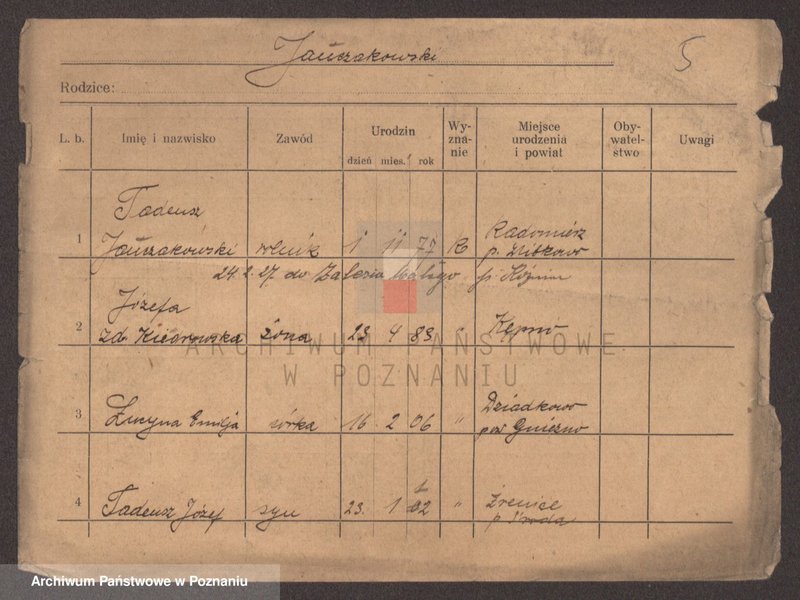 Jauczakowski
5
Rodzice:
L. b. Imię i nazwisko Zawód Urodzin dzień mies. rok Wy-zna-nie Miejsce urodzenia i powiat Oby-watel-stwo Uwagi
Tadeusz
1 Jauczakowski rolnik 1 11 77 R Radomierz
24.2.27. do Zalesia Małego p.
Józefa
2 zd. żona 23 4 83 " Kępno
3 Łucyna Emilja córka 16 2 06 " Dziadkowo
pow Gniezno
4 Tadeusz Józef syn 23. 1 " Żrenice
p. Środa
ARCHIWUM PAŃSTWOWE
W POZNANIU
Archiwum Państwowe w Poznaniu